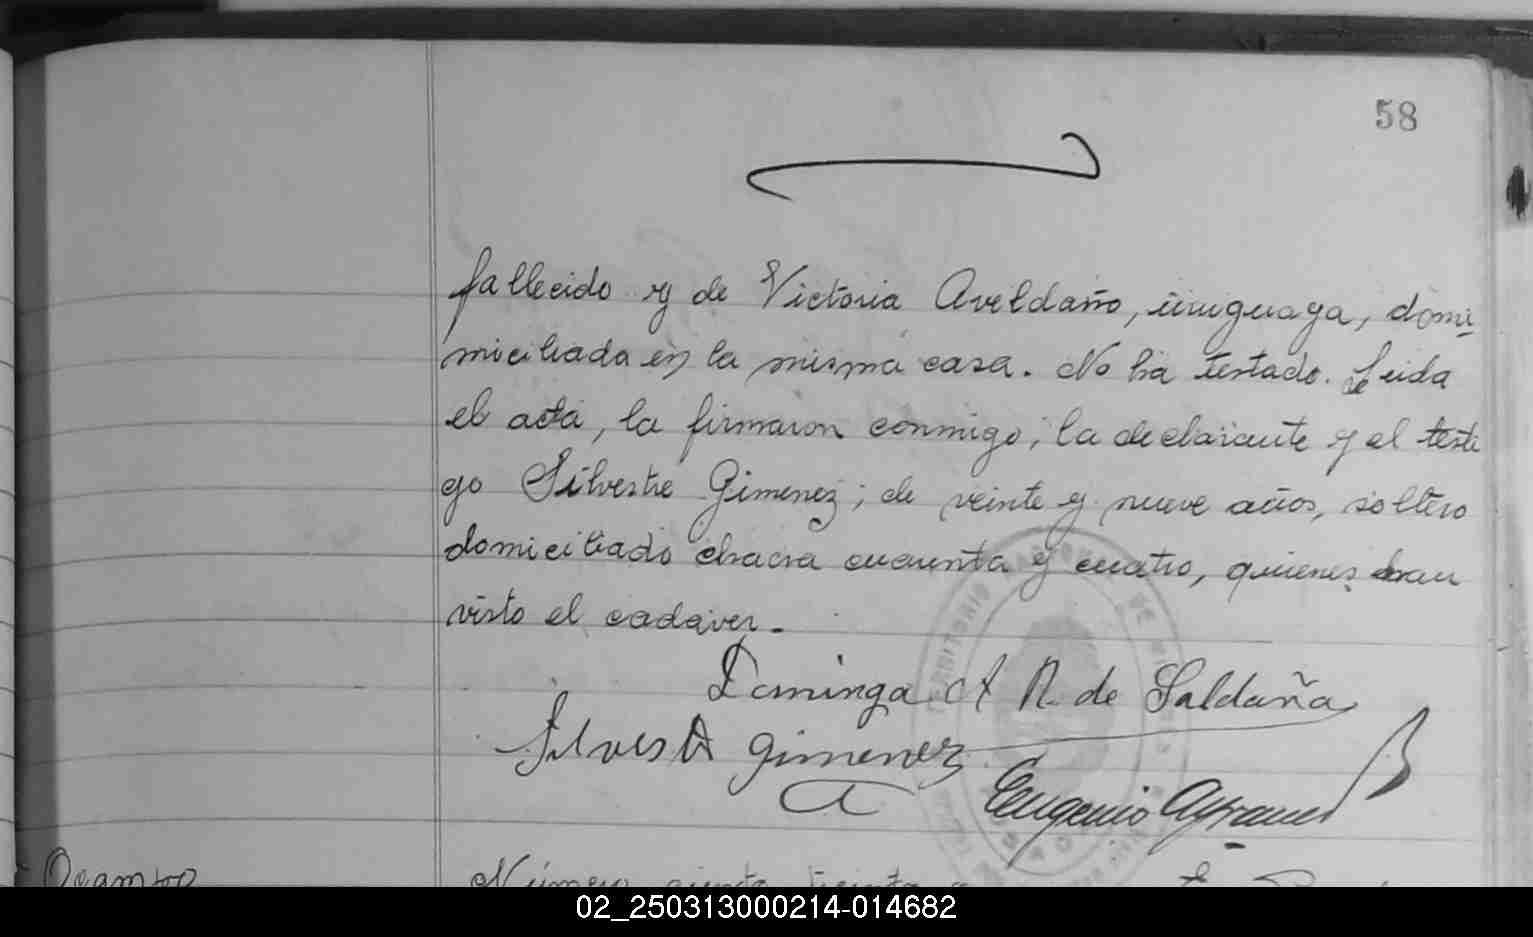 58
fallecido y de Victoria Aveldaño, uruguaya, domi
miciliada en la misma casa. No ha testado. Leida
el acta, la firmaron conmigo, la declarante y el testi
go Silvestre Gimenez; de veinte y nueve años, soltero
domiciliado chacra cuarenta y cuatro, quienes han
visto el cadaver.
Dominga A R. de Saldaña
Silvestre Gimenez
Eugenio
TERRITORIO NACIONAL DE
Ocampo
Número ciento treinta
02_250313000214-014682